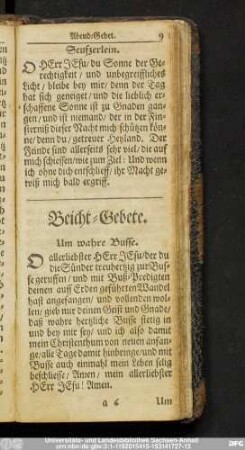 Abend-Gebet. 9
Seufzerlein.
O HErr JEsu/ du Sonne der Ge-
rechtigkeit / und unbegreiffliches
Licht/ bleibe bey mir/ denn der Tag
hat sich geneiget/ und die lieblich er-
schaffene Sonne ist zu Gnaden gan-
gen/ und ist niemand/ der in der Fin-
sterniß dieser Nacht mich schützen kön-
ne/ denn du/ getreuer Heyland. Der
Feinde sind allerseits sehr viel/ die auf
mich schiessen/ wie zum Ziel: Und wenn
ich ohne dich entschlieff/ ihr Macht ge-
wiß mich bald ergriff.
Beicht-Gebete.
Um wahre Busse.
O allerliebster HErr JEsu/ der du
die Sünder treuhertzig zur Bus-
se geruffen/ und mit Buß-Predigten
deinen auf Erden geführten Wandel
hast angefangen/ und vollenden wol-
len/ gieb mir deinen Geist und Gnade/
daß wahre hertzliche Busse stetig in
und bey mir sey/ und ich also damit
mein Christenthum von neuen anfan-
ge/ alle Tage damit hinbringe/ und mit
Busse auch einmahl mein Leben selig
beschliesse/ Amen/ mein allerliebster
HErr JEsu! Amen.
Um
Universitäts- und Landesbibliothek Sachsen-Anhalt
DFG